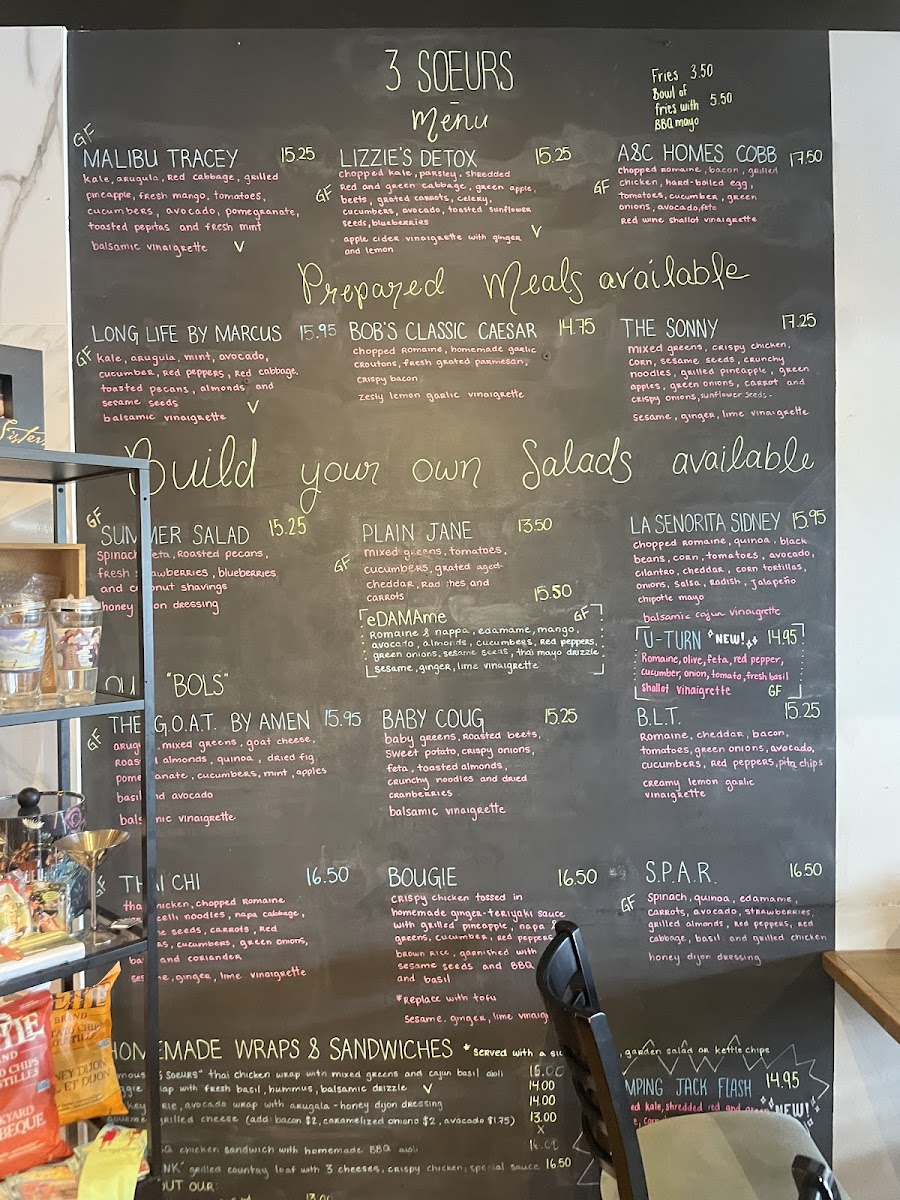 3 SOEURS
Menu
Fries 3.50
Bowl of
fries with 5.50
BBQ mayo
GF
MALIBU TRACEY 15.25
kale, arugula, red cabbage, grilled
pineapple, fresh mango, tomatoes,
cucumbers, avocado, pomegranate,
toasted pepitas and fresh mint
balsamic vinaigrette V
LIZZIE'S DETOX 15.25
chopped kale, parsley, shredded
GF red and green cabbage, green apple,
beets, grated carrots, celery,
cucumbers, avocado, toasted sunflower
seeds, blueberries
apple cider vinaigrette with ginger V
and lemon
A&C HOMES COBB 17.50
chopped romaine, bacon, grilled
GF chicken, hard-boiled egg,
tomatoes, cucumber, green
onions, avocado, feta
red wine shallot vinaigrette
Prepared Meals available
LONG LIFE BY MARCUS 15.95
GF kale, arugula, mint, avocado,
cucumber, red peppers, red cabbage,
toasted pecans, almonds and
sesame seeds
balsamic vinaigrette V
BOB'S CLASSIC CAESAR 14.75
chopped romaine, homemade garlic
croutons, fresh grated parmesan,
crispy bacon
zesty lemon garlic vinaigrette
THE SONNY 17.25
mixed greens, crispy chicken,
corn, sesame seeds, crunchy
noodles, grilled pineapple, green
apples, green onions, carrot and
crispy onions, sunflower seeds.
sesame, ginger, lime vinaigrette
Build your own Salads available
GF
SUMMER SALAD 15.25
spinach, feta, roasted pecans,
fresh strawberries, blueberries
and coconut shavings
honey dijon dressing
PLAIN JANE 13.50
GF mixed greens, tomatoes,
cucumbers, grated aged
cheddar, radishes and
carrots
15.50
eDAMAme GF
Romaine & nappa, edamame, mango,
avocado, almonds, cucumbers, red peppers,
green onions, sesame seeds, thai mayo drizzle
sesame, ginger, lime vinaigrette
LA SENORITA SIDNEY 15.95
chopped romaine, quinoa, black
beans, corn, tomatoes, avocado,
cilantro, cheddar, corn tortillas,
onions, salsa, radish, jalapeño
chipotle mayo
balsamic cajun vinaigrette
U-TURN NEW! 14.95
Romaine, olive, feta, red pepper,
cucumber, onion, tomato, fresh basil
shallot vinaigrette GF
"BOLS"
THE G.O.A.T. BY AMEN 15.95
GF mixed greens, goat cheese,
almonds, quinoa, dried fig,
cucumbers, mint, apples
basil and avocado
balsamic vinaigrette
BABY COUG 15.25
baby greens, roasted beets,
sweet potato, crispy onions,
feta, toasted almonds,
crunchy noodles and dried
cranberries
balsamic vinaigrette
B.L.T. 15.25
Romaine, cheddar, bacon,
tomatoes, green onions, avocado,
cucumbers, red peppers, pita chips
creamy lemon garlic
vinaigrette
THAI CHI 16.50
chicken, chopped romaine
noodles, napa cabbage,
seeds, carrots, red
cucumbers, green onions,
and coriander
sesame, ginger, lime vinaigrette
BOUGIE 16.50
crispy chicken tossed in
homemade ginger-teriyaki sauce
with grilled pineapple, napa &
greens, cucumber, red peppers
brown rice, garnished with
sesame seeds and BBQ
and basil
*replace with tofu
sesame, ginger, lime
S.P.A.R. 16.50
GF spinach, quinoa, edamame,
carrots, avocado, strawberries,
grilled almonds, red peppers, red
cabbage, basil and grilled chicken
honey dijon dressing
HOMEMADE WRAPS & SANDWICHES *served with a garden salad or kettle chips
SOEURS" thai chicken wrap with mixed greens and cajun basil aioli 15.00
wrap with fresh basil, hummus, balsamic drizzle V 14.00
brie, avocado wrap with arugula - honey dijon dressing 14.00
grilled cheese (add bacon $2, caramelized onions $2, avocado $1.75) 13.00
X
chicken sandwich with homemade BBQ aioli 16.00
grilled country loaf with 3 cheeses, crispy chicken, special sauce 16.50
OUT OUR:
13.00
JACK FLASH 14.95
kale, shredded red and
NEW!